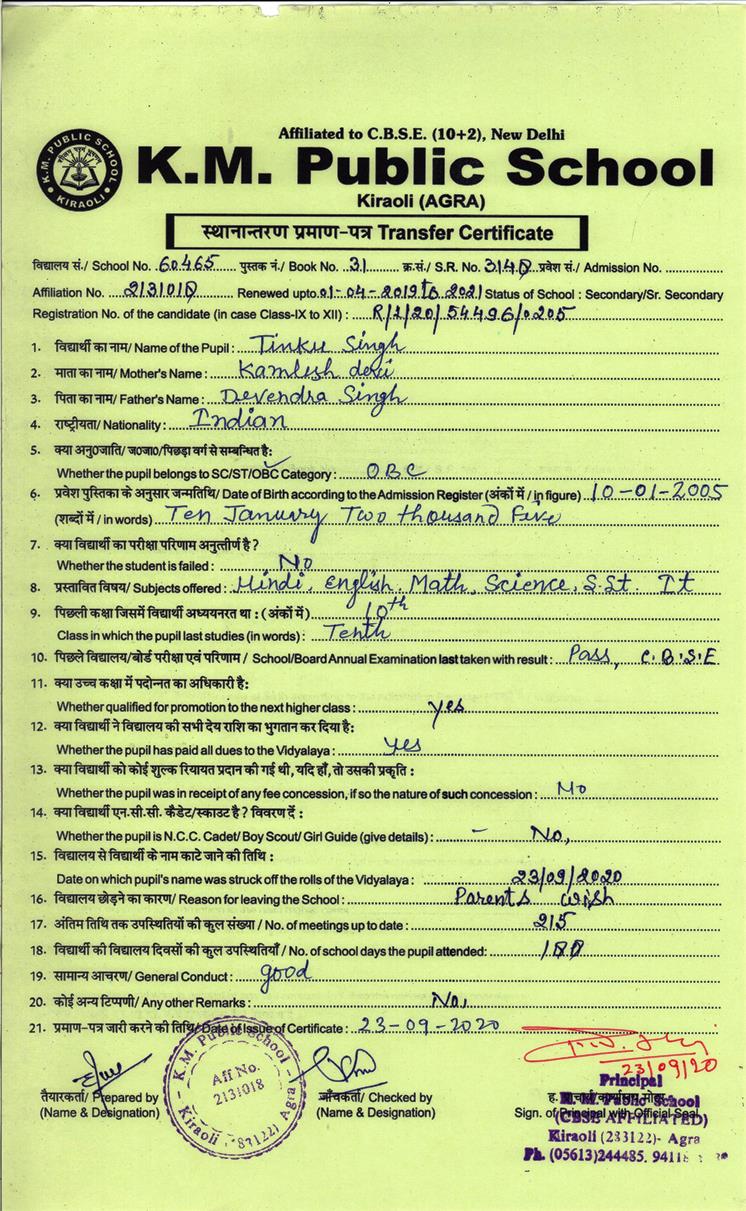 Affiliated to C.B.S.E. (10+2), New Delhi
K.M. PUBLIC SCHOOL
KIRAOLI
K.M. Public School
Kiraoli (AGRA)
स्थानान्तरण प्रमाण-पत्र Transfer Certificate
विद्यालय सं./ School No. 60465 पुस्तक नं./ Book No. 31 क्र.सं./ S.R. No. 3140 प्रवेश सं./ Admission No.
Affiliation No. 2131010 Renewed upto: 01-04-2019 to 2021 Status of School : Secondary/Sr. Secondary
Registration No. of the candidate (in case Class-IX to XII) : R/1/20/54496/0205
1. विद्यार्थी का नाम/ Name of the Pupil : Tinku Singh
2. माता का नाम/ Mother's Name : Kamlesh devi
3. पिता का नाम/ Father's Name : Devendra Singh
4. राष्ट्रीयता/ Nationality : Indian
5. क्या अनु0जाति/ ज0जा0/पिछड़ा वर्ग से सम्बन्धित है:
Whether the pupil belongs to SC/ST/OBC Category : OBC
6. प्रवेश पुस्तिका के अनुसार जन्मतिथि/ Date of Birth according to the Admission Register (अंकों में / in figure) 10-01-2005
(शब्दों में / in words) Ten January Two thousand Five
7. क्या विद्यार्थी का परीक्षा परिणाम अनुत्तीर्ण है ?
Whether the student is failed : No
8. प्रस्तावित विषय/ Subjects offered : Hindi, English, Math, Science, S.St. It
9. पिछली कक्षा जिसमें विद्यार्थी अध्ययनरत था : (अंकों में) 10th
Class in which the pupil last studies (in words) : Tenth
10. पिछले विद्यालय/बोर्ड परीक्षा एवं परिणाम / School/Board Annual Examination last taken with result : Pass, C.B.S.E
11. क्या उच्च कक्षा में पदोन्नत का अधिकारी है:
Whether qualified for promotion to the next higher class : yes
12. क्या विद्यार्थी ने विद्यालय की सभी देय राशि का भुगतान कर दिया है:
Whether the pupil has paid all dues to the Vidyalaya : yes
13. क्या विद्यार्थी को कोई शुल्क रियायत प्रदान की गई थी, यदि हाँ, तो उसकी प्रकृति :
Whether the pupil was in receipt of any fee concession, if so the nature of such concession : No
14. क्या विद्यार्थी एन.सी.सी. कैडेट/स्काउट है ? विवरण दें :
Whether the pupil is N.C.C. Cadet/ Boy Scout/ Girl Guide (give details) : - No,
15. विद्यालय से विद्यार्थी के नाम काटे जाने की तिथि :
Date on which pupil's name was struck off the rolls of the Vidyalaya : 23/09/2020
16. विद्यालय छोड़ने का कारण/ Reason for leaving the School : Parents wish
17. अंतिम तिथि तक उपस्थितियों की कुल संख्या / No. of meetings up to date : 215
18. विद्यार्थी की विद्यालय दिवसों की कुल उपस्थितियाँ / No. of school days the pupil attended:
19. सामान्य आचरण/ General Conduct : good
20. कोई अन्य टिप्पणी/ Any other Remarks : No,
21. प्रमाण-पत्र जारी करने की तिथि/ Date of Issue of Certificate : 23-09-2020
23/09/20
K.M. Public School
Aff No.
2131018
Kiraoli, Agra
तैयारकर्ता/ Prepared by
(Name & Designation)
जाँचकर्ता/ Checked by
(Name & Designation)
Principal
Sign. of Principal with Official Seal
K. M. Public School
(CBSE AFFILIATED)
Kiraoli (283122)- Agra
Ph. (05613)244485,